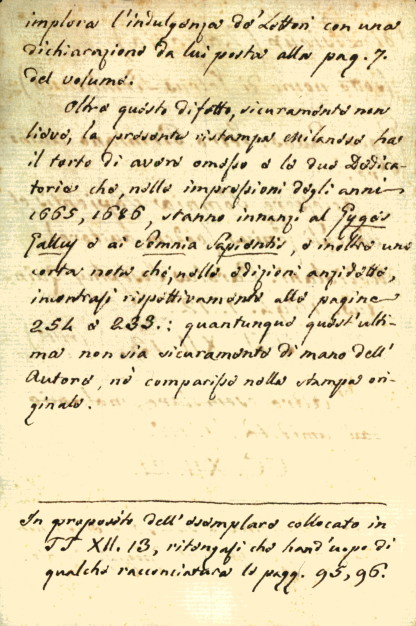 implora l'indulgenza de' Lettori con una
dichiarazione da lui posta alla pag. 7.
del volume.
Oltre questo difetto, sicuramente non
lieve, la presente ristampa Milanese ha
il torto di avere omesso e le due Dedica-
torie che, nelle impressioni degli anni
1665, 1686, stanno innanzi al Gyges
Gallus e ai Somnia Sapientis, e inoltre una
certa nota che, nelle edizioni anzidette,
incontrasi rispettivamente alle pagine
254 e 233.: quantunque quest'ulti-
ma non sia sicuramente di mano dell'
Autore, nè comparisse nella stampa ori-
ginale.
In proposito dell'esemplare collocato in
TT XII. 13, ritengasi che hand'uopo di
qualche racconciatura le pagg. 95, 96.